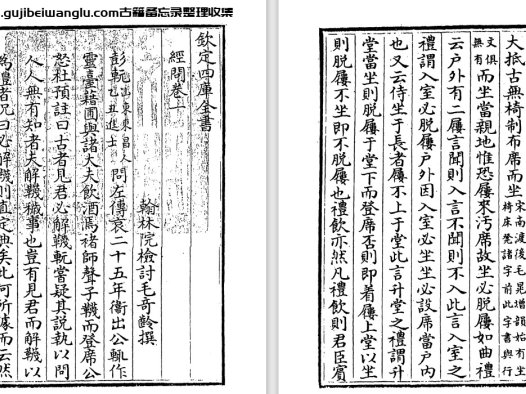 .gujibeiwanglu.com古籍备忘录整理收集
欽定四庫全書
經問卷十
翰林院檢討毛奇齡撰
彭軏
問左傳哀二十五年衛出公輒作
靈臺藉圃與諸大夫飲酒焉褚師聲子韈而登席公
怒杜預註曰古者見君必解韈軏嘗疑其説執以問
人人無有知者夫解韈褻事也豈有見君而解韈以
為禮者況曰必解韈則直定典矣此何所據而云然
大抵古無椅制布席而坐
宋南渡後毛晃增韻始有坐
椅床凳諸字前此字書與行
文俱
無有
而坐當親地惟恐屨來汚席故坐必脱屨如曲禮
云户外有二屨言聞則入言不聞則不入此言入室之
禮謂入室必脱屨户外因入室必坐坐必設席當户内
也又云侍坐于長者屨不上于堂此言升堂之禮謂升
堂當坐則脱屨于堂下而登席否則即着屨上堂以坐
則脱屨不坐即不脱屨也禮飲亦然凡禮飲則君臣賓